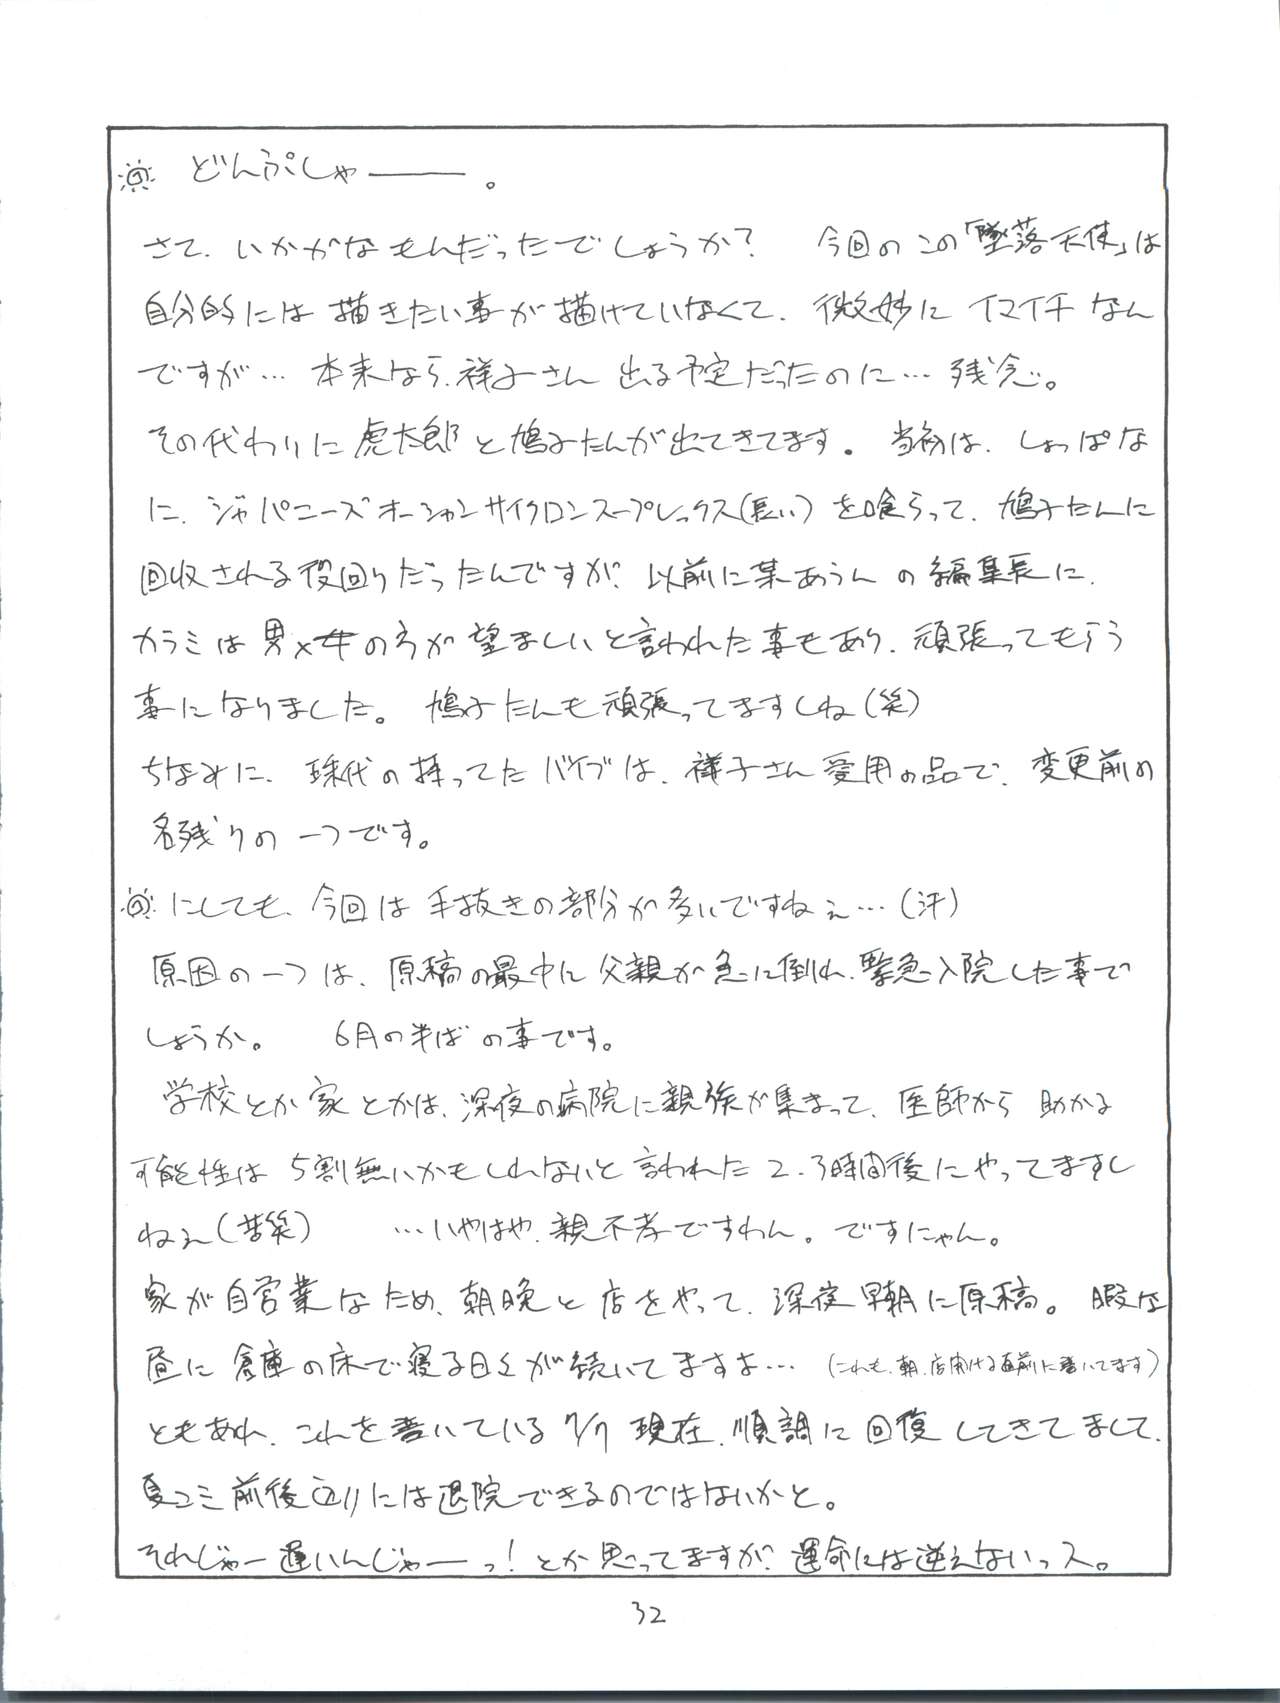 どんぷしゃ───。
さて、いかがなもんだったでしょうか? 今回のこの「墜落天使」は
自分的には描きたい事が描けていなくて、微妙にイマイチなん
ですが… 本来なら、祥子さん出る予定だったのに… 残念。
その代わりに虎太郎と鳩子たんが出てきてます。当初は、しょっぱな
に、ジャパニーズオーシャンサイクロンスープレックス(長い)を喰らって、鳩子たんに
回収される役回りだったんですが、以前に某あうんの編集長に、
カラミは男×女の方が望ましいと言われた事もあり、頑張ってもらう
事になりました。鳩子たんも頑張ってますしね(笑)
ちなみに、珠代の持ってたバイブは、祥子さん愛用の品で、変更前の
名残りの一つです。
にしても、今回は手抜きの部分が多いですねぇ…(汗)
原因の一つは、原稿の最中に父親が急に倒れ、緊急入院した事で
しょうか。 6月の半ばの事です。
学校とか家とかは、深夜の病院に親族が集まって、医師から助かる
可能性は5割無いかもしれないと言われた2、3時間後にやってますし
ねぇ(苦笑) …いやはや、親不孝ですわん。ですにゃん。
家が自営業なため、朝晩と店をやって、深夜早朝に原稿。暇な
昼に倉庫の床で寝る日々が続いてますよ…(これも、朝、店開ける直前に書いてます)
ともあれ、これを書いている7/7現在、順調に回復してきてまして、
夏コミ前後辺りには退院できるのではないかと。
それじゃー遅いんじゃーっ!とか思ってますが、運命には逆えないっス。
32